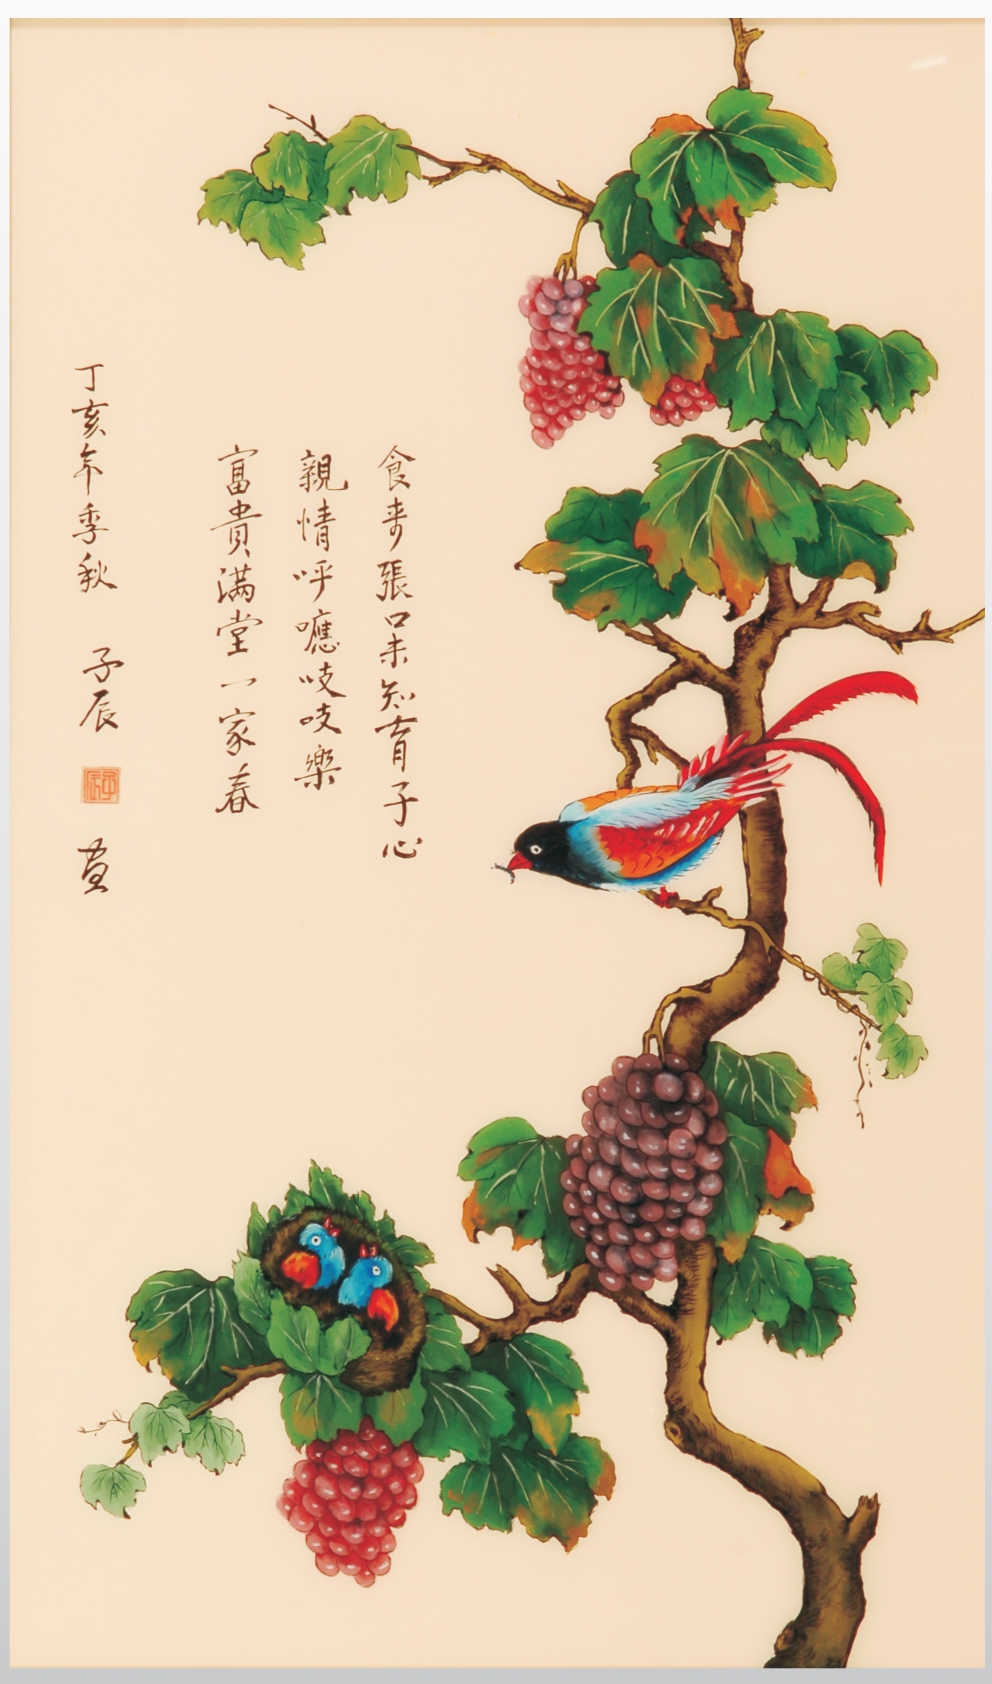 食來張口未知育子心
親情呼應吱吱樂
富貴滿堂一家春
丁亥年季秋 子辰 畫